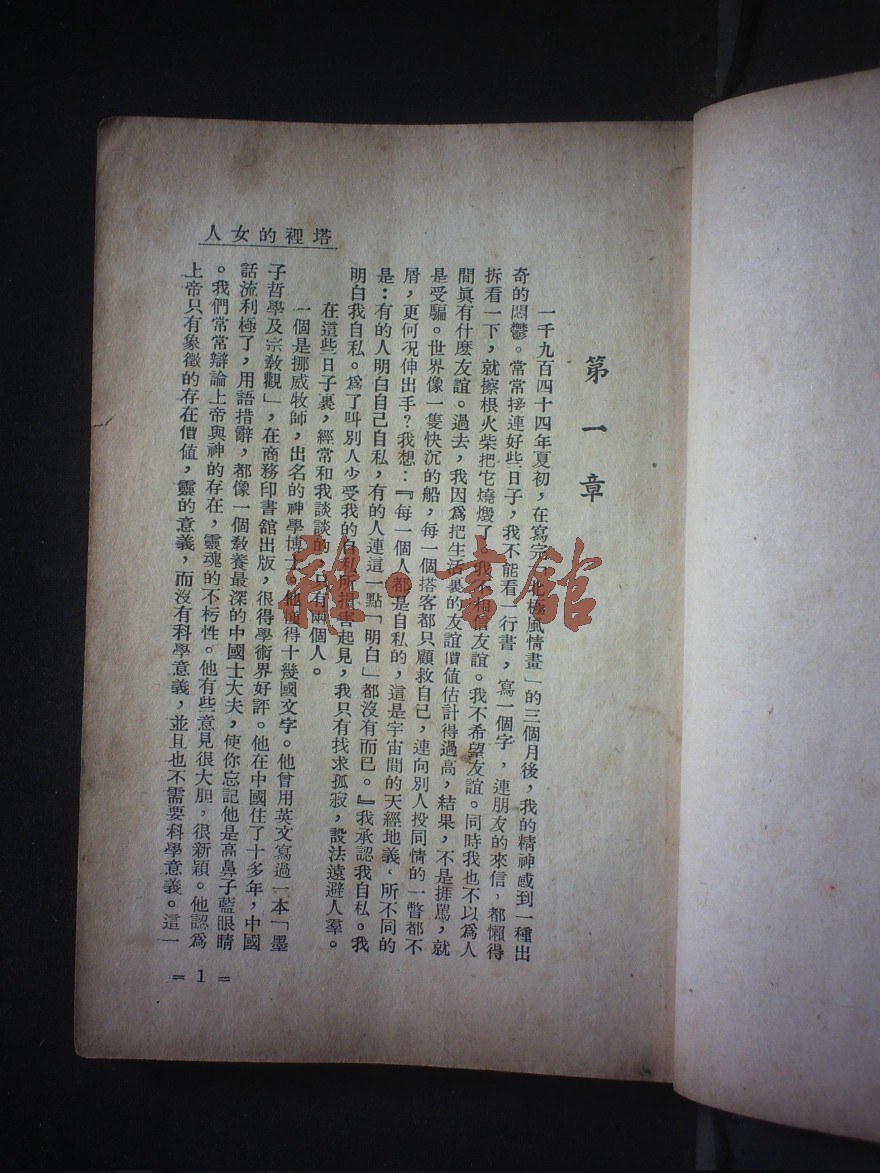 塔裡的女人
第一章
一千九百四十四年夏初，在寫完「北極風情畫」的三個月後，我的精神感到一種出
奇的悶鬱。常常接連好些日子，我不能看一行書，寫一個字，連朋友的來信，都懶得
拆看一下，就擦根火柴把它燒燬了。我不相信友誼。我不希望友誼。同時我也不以爲人
間眞有什麽友誼。過去，我因爲把生活裏的友誼價值估計得過高，結果，不是捱罵，就
是受騙。世界像一隻快沉的船，每一個搭客都只顧救自己，連向別人投同情的一瞥都不
屑，更何況伸出手？我想：『每一個人都是自私的，這是宇宙間的天經地義，所不同的
是：有的人明白自己自私，有的人連這一點「明白」都沒有而已。』我承認我自私。我
明白我自私。爲了叫別人少受我的自私所損害起見，我只有找求孤寂，設法遠避人羣。
在這些日子裏，經常和我談談的，只有兩個人。
一個是挪威牧師，出名的神學博士。他懂得十幾國文字。他曾用英文寫過一本「墨
子哲學及宗敎觀」，在商務印書舘出版，很得學術界好評。他在中國住了十多年，中國
話流利極了，用語措辭，都像一個敎養最深的中國士大夫，使你忘記他是高鼻子藍眼睛
。我們常常辯論上帝與神的存在，靈魂的不朽性。他有些意見很大胆，很新穎。他認爲
上帝只有象徵的存在價值，靈的意義，而沒有科學意義，並且也不需要科學意義。這一
=1=
雜·書館